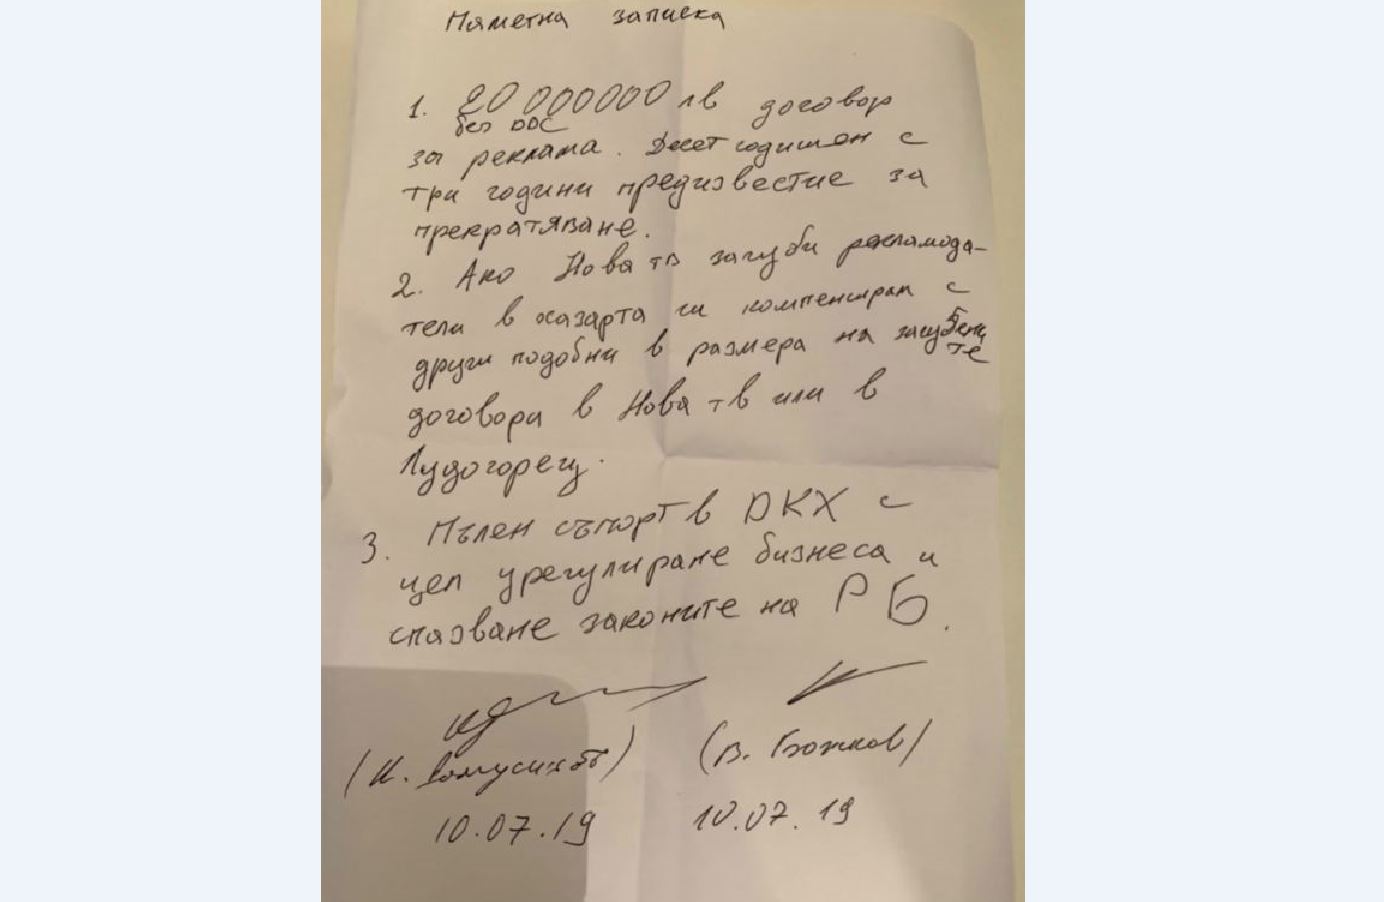 Паметна записка
1. 20 000000 лв договор
без ДДС
за реклама. Десет годишен с
три години предизвестие за
прекратяване.
2. Ако Нова тв загуби рекламода-
тели в хазарта ги компенсирам с
други подобни в размера на загубени
те
договори в Нова тв или в
Лудогорец.
3. Пълен съпорт в ДКХ с
цел урегулиране бизнеса и
спазване законите на РБ.
(К. Домусчиев) (В. Божков)
10.07.19 10.07.19